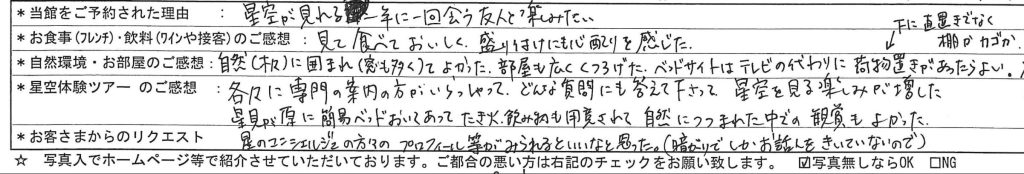 *当館をご予約された理由 : 星空が見れる 一年に一回会う友人と楽しみたい
*お食事(フレンチ)・飲料(ワインや接客)のご感想 : 見て食べておいしく、盛り付けにも心配りを感じた。
下に直置きでなく
棚かカゴか
*自然環境・お部屋のご感想 : 自然(木々)に囲まれ(窓も多く)てよかった。部屋も広くくつろげた。ベッドサイトはテレビの代わりに荷物置きがあったらよい。
*星空体験ツアー のご感想 : 各々に専門の案内の方がいらっしゃって、どんな質問にも答えて下さって 星空を見る楽しみが増した
星見が原に簡易ベッドおいてあって たき火、飲み物も用意されて 自然につつまれた中での観賞もよかった。
*お客さまからのリクエスト 星のコンシェルジュの方々の プロフィール等がみられるといいなと思った。(暗がりでしかお話をきいていないので)
☆ 写真入でホームページ等で紹介させていただいております。ご都合の悪い方は右記のチェックをお願い致します。 ☑写真無しならOK □NG